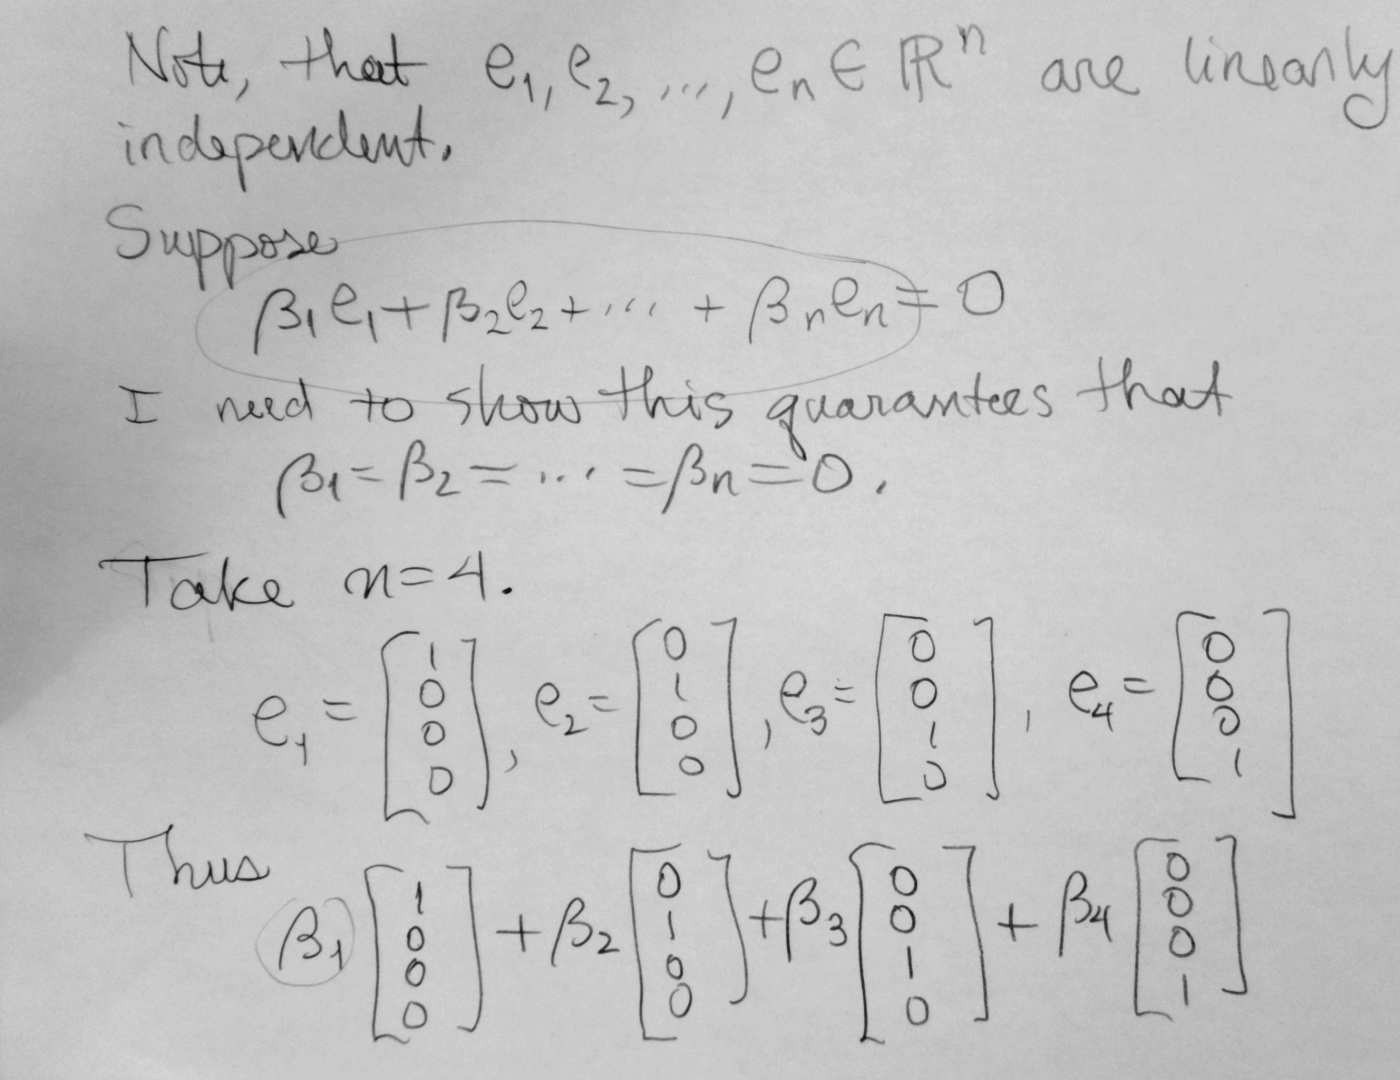 Note, that e₁, e₂, ..., eₙ ∈ ℝⁿ are linearly
independent.
Suppose
β₁e₁ + β₂e₂ + ... + βₙeₙ = 0
I need to show this guarantees that
β₁ = β₂ = ... = βₙ = 0.
Take n=4.
e₁ = [1 0 0 0], e₂ = [0 1 0 0], e₃ = [0 0 1 0], e₄ = [0 0 0 1]
Thus
β₁ [1 0 0 0] + β₂ [0 1 0 0] + β₃ [0 0 1 0] + β₄ [0 0 0 1]